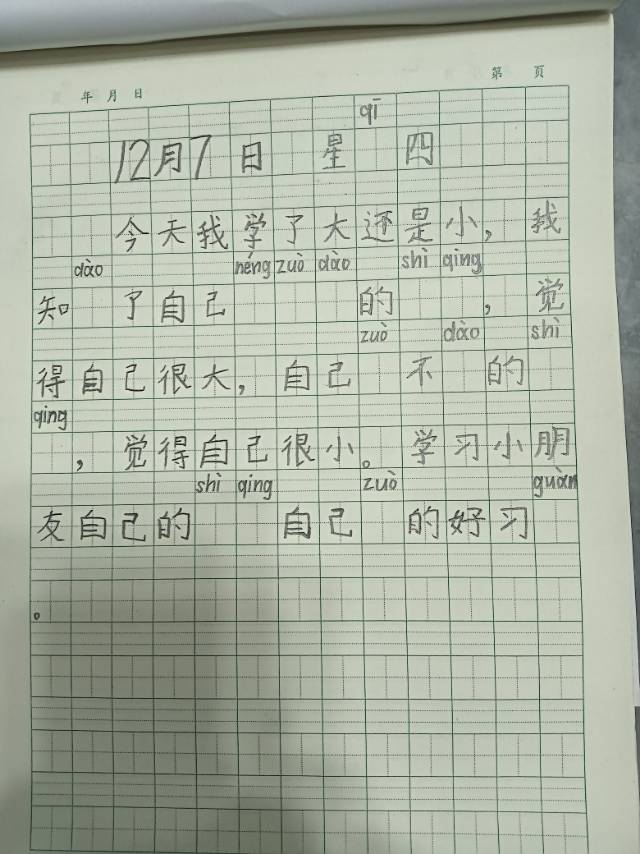 年 月 日
第 页
qī
12月7日 星 四
今天我学了大还是小，我
dào néng zuò dào shì qing
知 了自己 的 ，觉
zuò dào shì
得自己很大，自己 不 的
qing
，觉得自己很小。学习小朋
shì qing zuò guàn
友自己的 自己 的好习
。